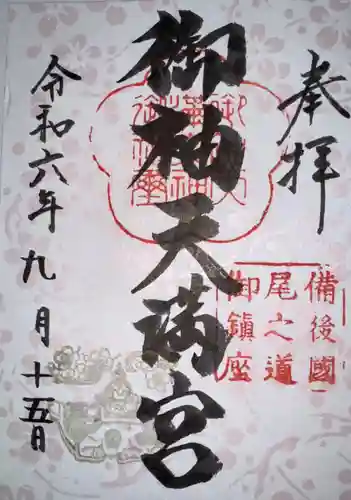 奉拝
備後國
尾之道
御鎮座
御袖天満宮
令和六年九月十五日